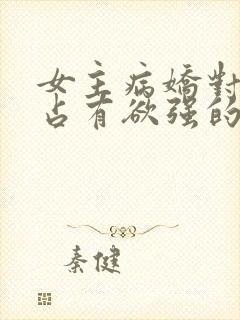 女主病嬌對
占有欲强的
秦健